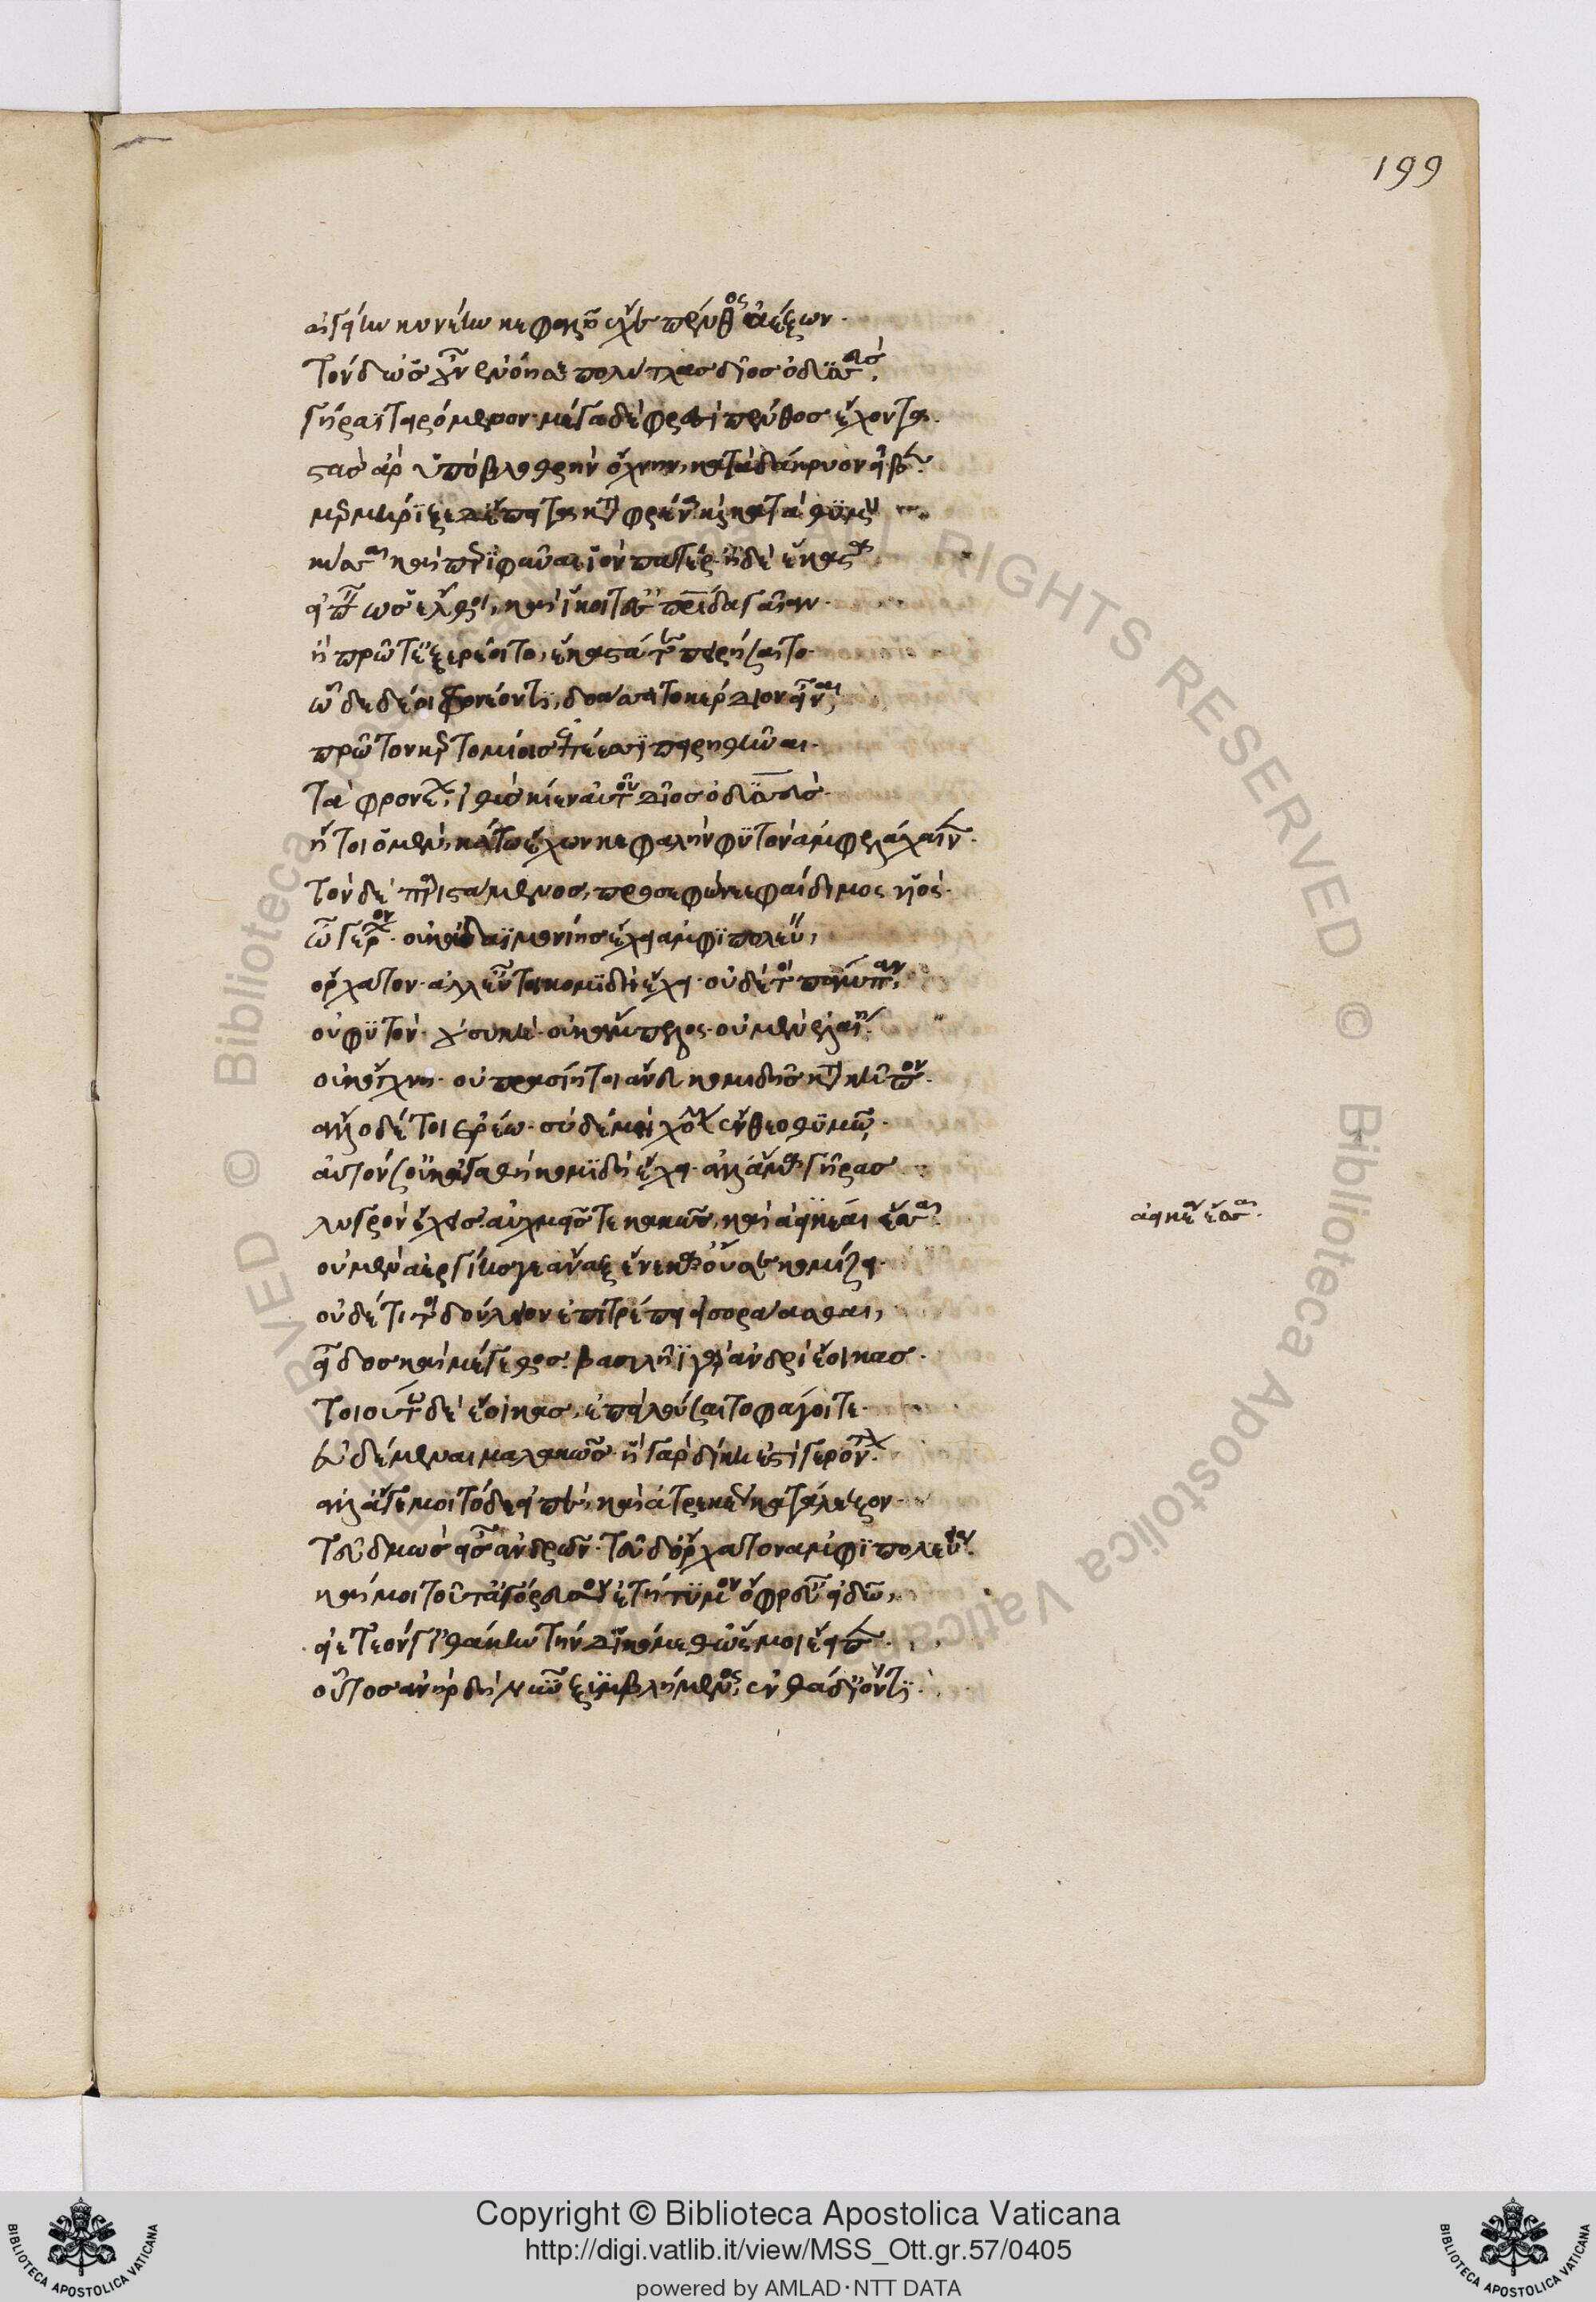 199
αἰγείην κυνέην κεφαλῆ ἔχε πένθος ἀέξων.
τὸν δ' ὡς οὖν ἐνόησε πολύτλας δῖος ὀδυσσεὺς,
γήραϊ τειρόμενον. μέγα δὲ φρεσὶ πένθος ἔχοντα.
στὰς ἄρ ὑπὸ βλωθρὴν ὄχνην, κατὰ δάκρυον εἶβε.
μερμήριξε δ' ἔπειτα κατὰ φρένα καὶ κατὰ θυμὸν
κύσσαι καὶ περιφῦναι ἑὸν πατέρ. ἠδὲ ἕκαστα
εἰπεῖν ὡς ἔλθοι, καὶ ἵκοιτ' ἐς πατρίδα γαῖαν.
ἢ πρῶτ' ἐξερέοιτο, ἕκαστά τε πειρήσαιτο.
ὧδε δέ οἱ φρονέοντι, δοάσσατο κέρδιον εἶναι,
πρῶτον κερτομίοις ἐπέεσσι πειρηθῆναι.
τὰ φρονέων, ἰθὺς κίεν αὐτοῦ δῖος ὀδυσσεὺς.
ἤτοι ὁ μὲν, κάτω ἔχων κεφαλὴν φυτὸν ἀμφελάχαινε.
τὸν δὲ παριστάμενος, προσεφώνεε φαίδιμος υἱός.
ὦ γέρον. οὐκ ἀδαημονίη σ' ἔχει ἀμφιπολεύειν,
ὄρχατον. ἀλλ' εὖ τοι κομιδὴ ἔχει. οὐδέ τι πάμπαν,
οὐ φυτόν. οὐ συκῆ. οὐκ ἄμπελος. οὐ μὲν ἐλαίη.
οὐκ ὄχνη. οὐ πρασιή τοι ἄνευ κομιδῆς κατὰ κῆπον.
ἄλλο δέ τοι ἐρέω. σὺ δὲ μὴ χόλον ἔνθεο θυμῶ.
αὐτόν σ' οὐκ ἀγαθὴ κομιδὴ ἔχει. ἀλλ' ἅμα γῆρας
λυγρὸν ἔχεις. αὐχμεῖς τε κακῶς, καὶ ἀεικέα ἕσσαι.
ἀεικέα ἕσσαι.
οὐ μὲν ἀεργίης γε ἄναξ ἕνεκ' οὔ σε κομίζει.
οὐδέ τί τοι δούλειον ἐπιτρέπει εἰσοράασθαι,
εἶδος καὶ μέγεθος. βασιλῆϊ γὰρ ἀνδρὶ ἔοικας.
τοιούτω δὲ ἔοικας, ἐπεὶ λούσαιτο φάγοι τε.
εὑδέμεναι μαλακῶς. ἣ γὰρ δίκη ἐστὶ γερόντων.
ἀλλ' ἄγε μοι τόδε εἰπὲ, καὶ ἀτρεκέως κατάλεξον.
τοῦ δμὼς εἶς ἀνδρῶν. τοῦ δ' ὄρχατον ἀμφιπολεύεις.
καί μοι τοῦτ' ἀγόρευσον ἐτήτυμον ὄφρ' εὖ εἰδῶ,
εἰ ἐτεόν γ' ἰθάκην τήνδ' ἱκόμεθ' ὥς μοι ἔειπεν.
οὗτος ἀνὴρ δὴ νῦν ξυμβλήμενος, ἐνθάδ' ἰόντι.
Copyright © Biblioteca Apostolica Vaticana
http://digi.vatlib.it/view/MSS_Ott.gr.57/0405
powered by AMLAD·NTT DATA